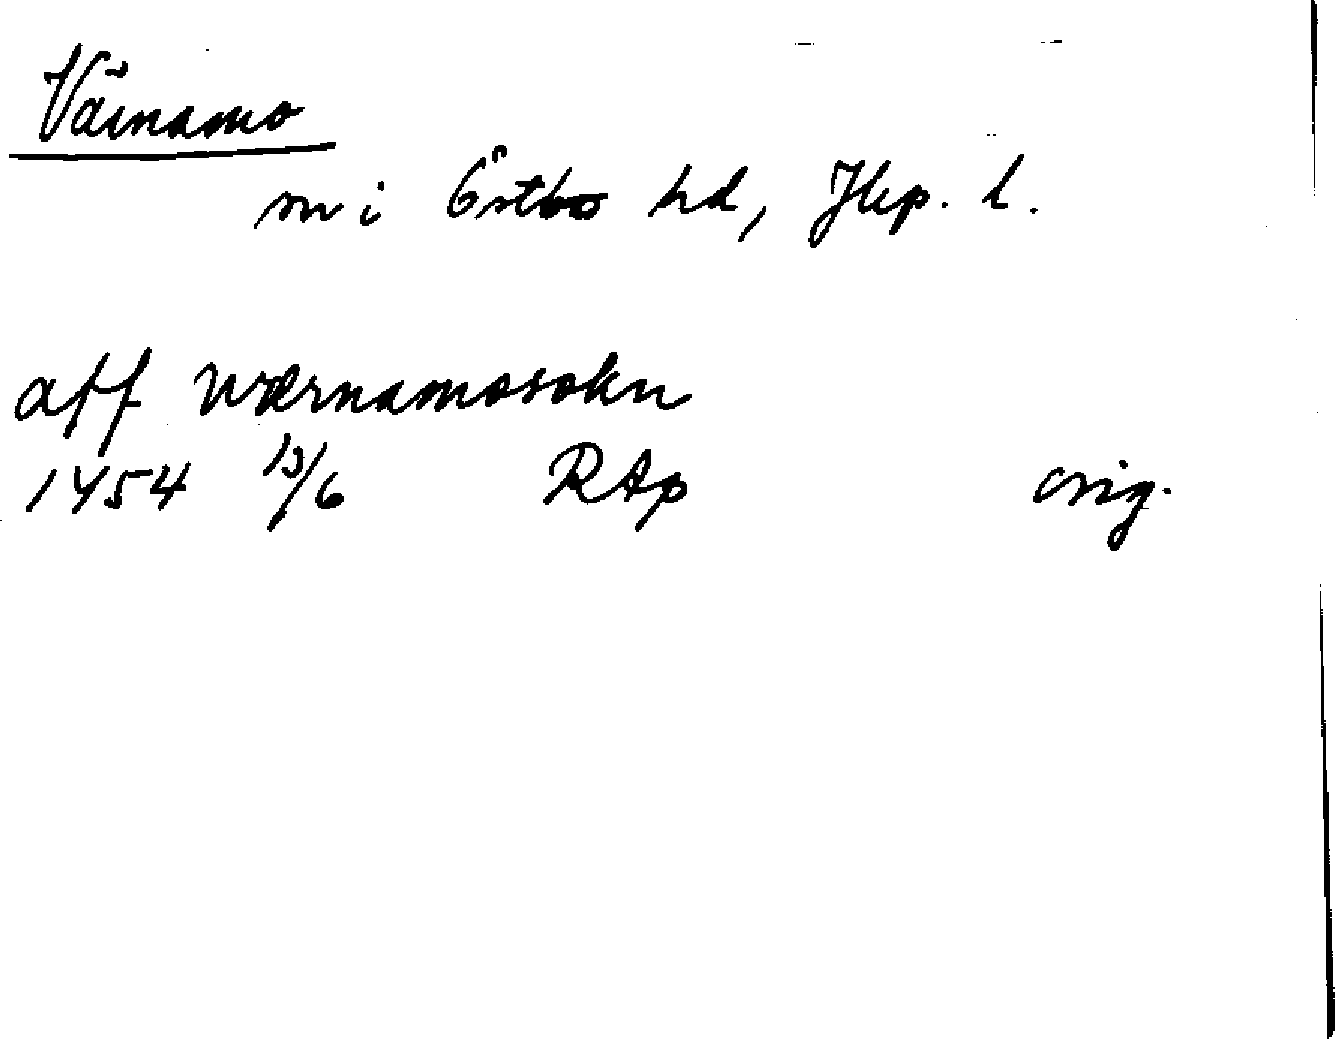 Värnamo
sn i Östbo hd, Jkp. l.
aff wærnamosokn
1454 13/6 RAp orig.